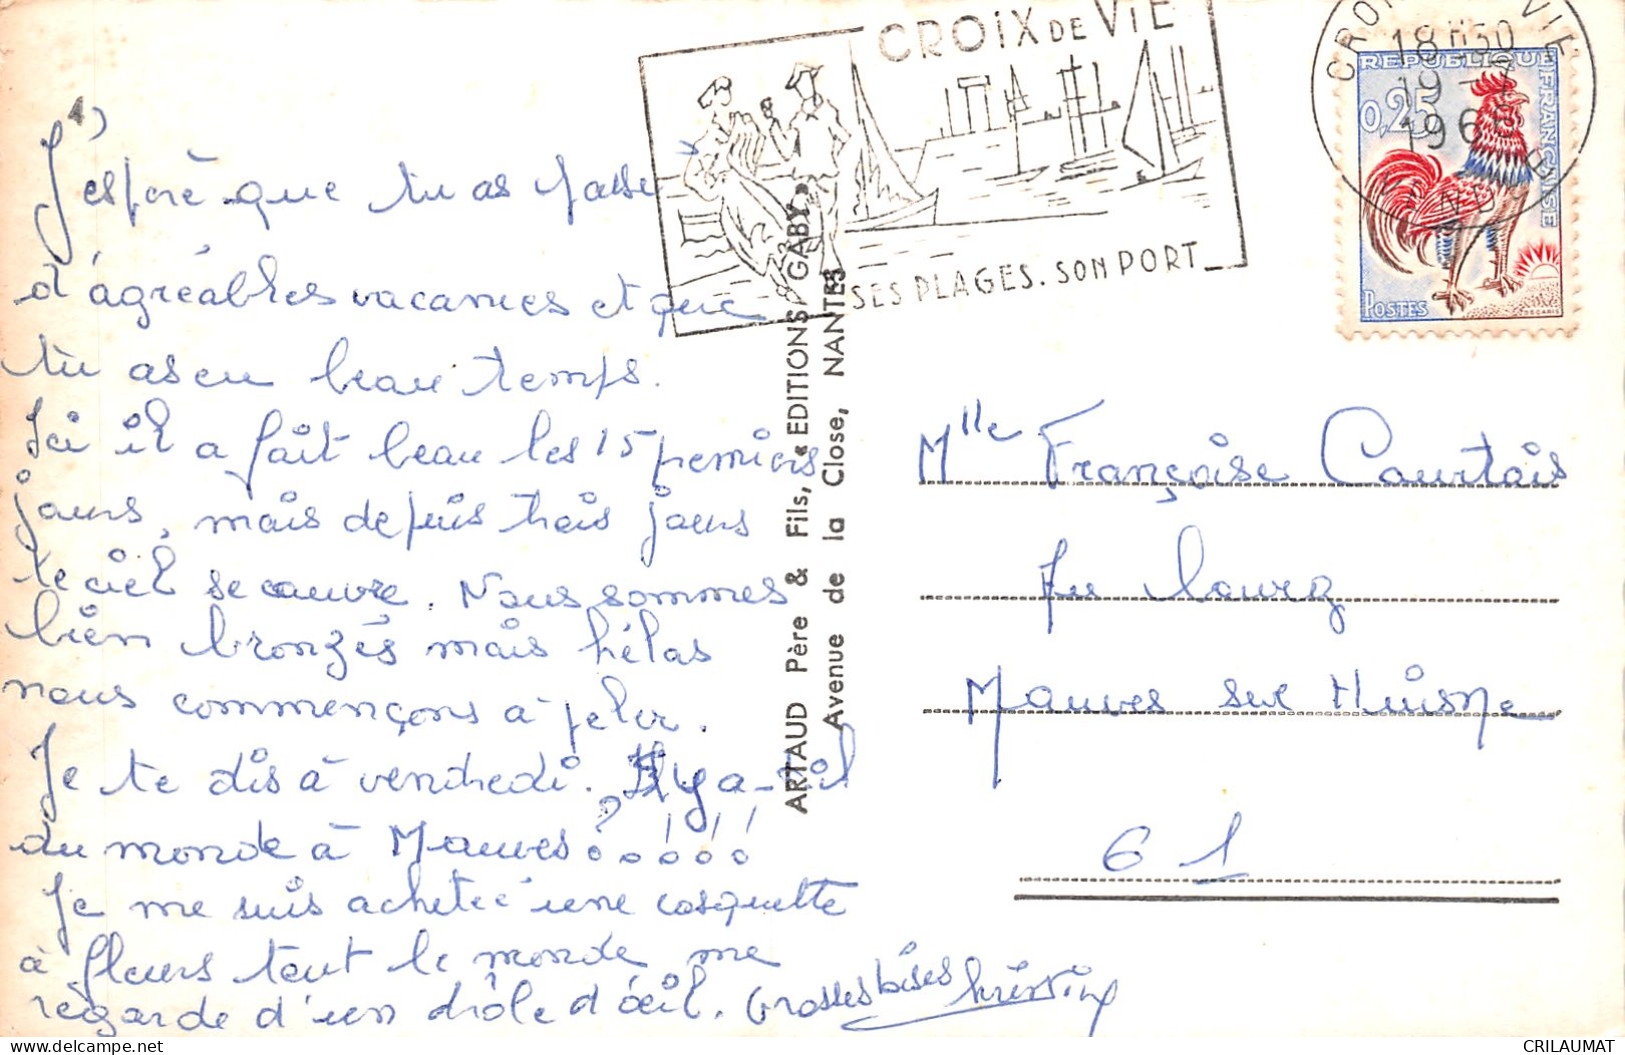 J'espère que tu as passé
d'agréables vacances et que
tu as eu beau temps.
Ici il a fait beau les 15 premiers
jours, mais depuis trois jours
le ciel se couvre. Nous sommes
bien bronzés mais hélas
nous commençons à peler.
Je te dis à vendredi. Il y a-t-il
du monde à Mauves ? ! ! ! !
Je me suis achetée une casquette
à fleurs tout le monde me
regarde d'un drôle d'oeil. Grosses bises Christine
ARTAUD Père & Fils, « EDITIONS GABY »
Avenue de la Close, NANTES
CROIX DE VIE
SES PLAGES. SON PORT
18 H 30
19
196
REPUBLIQUE FRANÇAISE
0,25
POSTES
DECARIS
Mlle Françoise Courtois
Mauves sur Huisne
61
CRILAUMAT